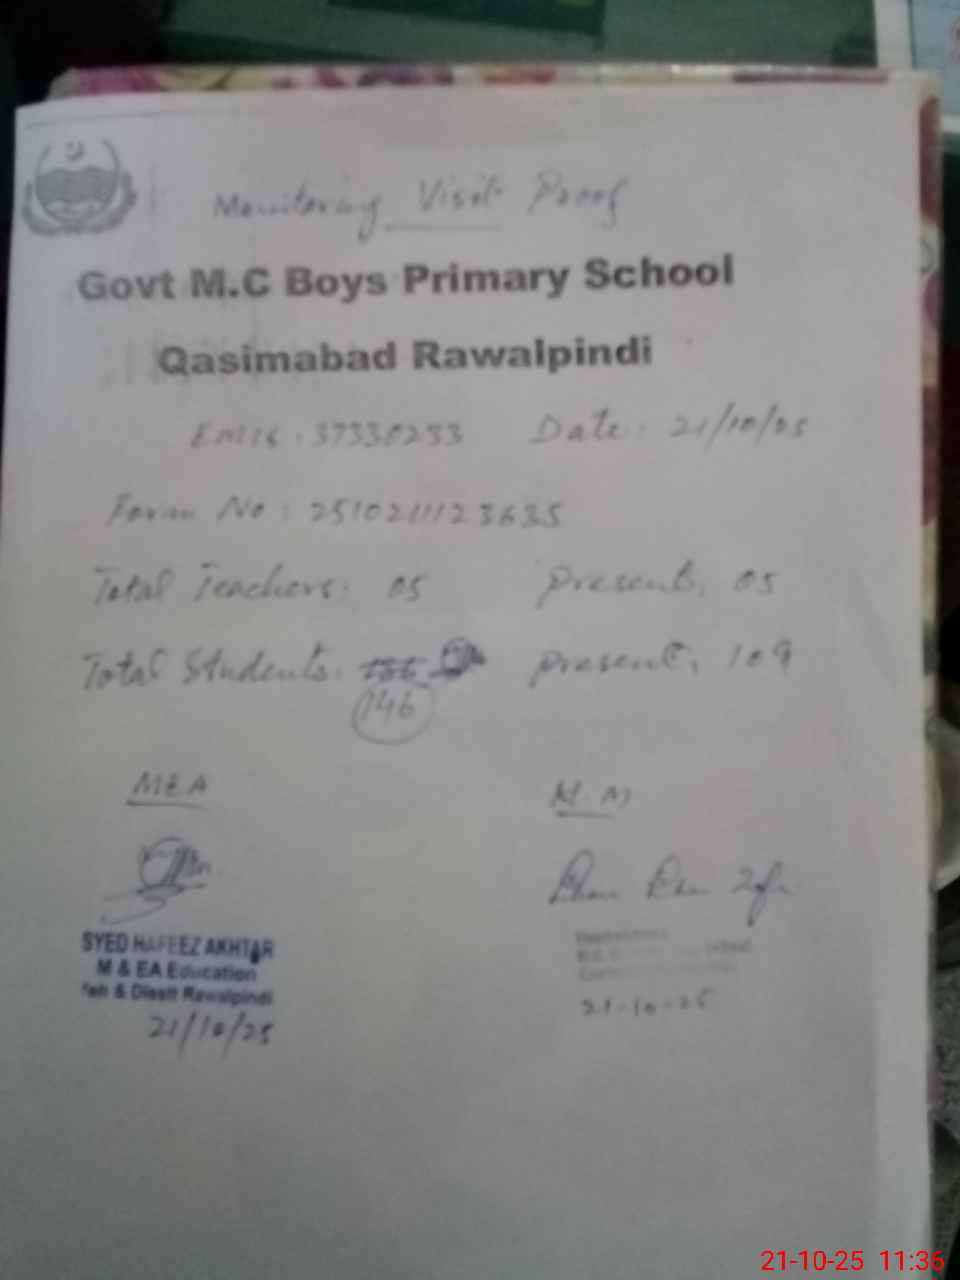 Monitoring Visit Proof
Govt M.C Boys Primary School
Qasimabad Rawalpindi
EMIS . 37330233 Date: 21/10/25
Form No : 2510211123635
Total Teachers: 05 present, 05
Total Students: 146 present, 109
MEA H.M
SYED HAFEEZ AKHTAR
M & EA Education
Teh & Disstt Rawalpindi
21/10/25
21-10-25
21-10-25 11:36